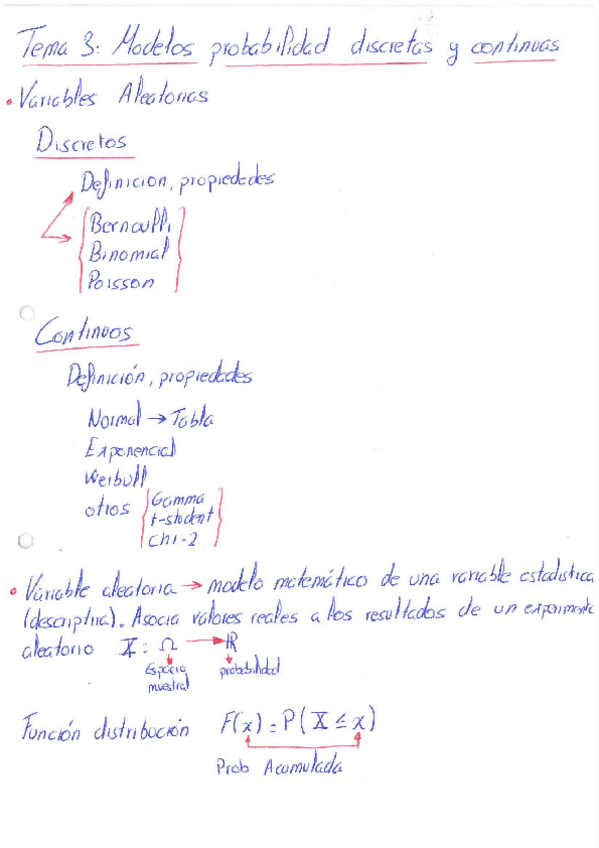 Tema 3: Modelos probabilidad discretas y continuas
• Variables Aleatorias
Discretos
Definicion, propiedades
Bernoulli
Binomial
Poisson
Continuos
Definición, propiedades
Normal → Tabla
Exponencial
Weibull
otros { Gamma
t-student
Chi-2
• Variable aleatoria → modelo matemático de una variable estadistica
(descriptiva). Asocia valores reales a los resultados de un experimento
aleatorio X : Ω → ℝ
Espacio muestral
probabilidad
Función distribución F(x) = P(X ≤ x)
Prob Acumulada